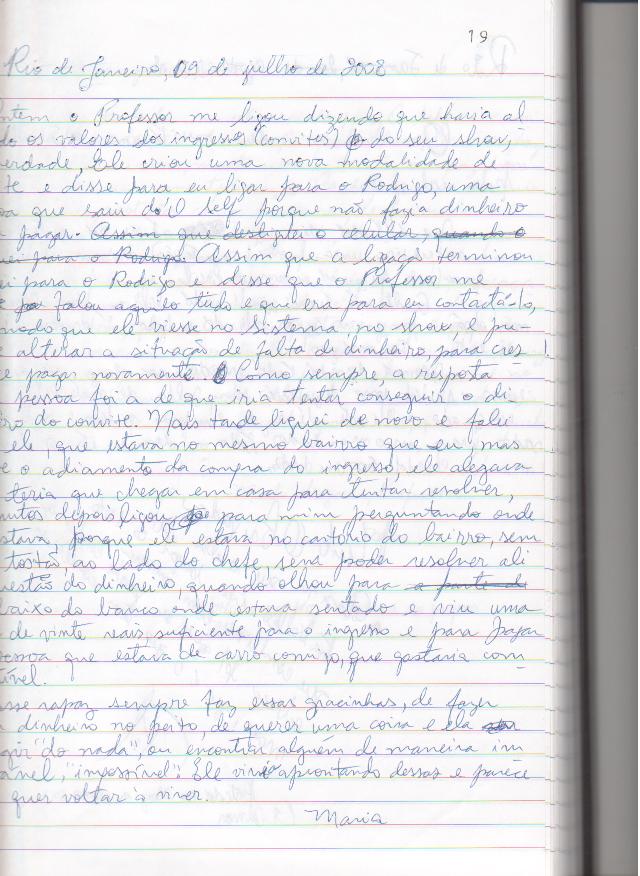 19
Rio de Janeiro, 09 de julho de 2008
ntem o Professor me ligou dizendo que havia al
do os valores dos ingressos (convites) do seu show,
erdade, Ele criou uma nova modalidade de
te e disse para eu ligar para o Rodrigo, uma
oa que saiu do O self porque não fazia dinheiro
pagar. Assim que desliguei o celular, quando o
uei para o Rodrigo. Assim que a ligaçã terminou
ei para o Rodrigo e disse que o Professor me
falou aquilo tudo e que era para eu contactá-lo,
modo que ele viesse no sistema, no show, e pu-
e alterar a situação de falta de dinheiro, para cres !
e pagar novamente. Como sempre, a resposta
pessoa foi a de que iria tentar conseguir o di-
ro do convite. Mais tarde liguei de novo e falei
ele, que estava no mesmo bairro que eu, mas
e o adiamento da compra do ingresso, ele alegava
teria que chegar em casa para tentar resolver,
nutos depois ligou para mim perguntando onde
stava, porque ele estava no cartório do bairro, sem
tostão, ao lado do chefe, sem poder resolver ali
uestão do dinheiro, quando olhou para a parte de
baixo do banco onde estava sentado e viu uma
de vinte reais, suficiente para o ingresso e para pagar
pessoa que estava de carro comigo, que gastaria com-
ível.
sse rapaz sempre faz essas gracinhas, de fazer
dinheiro no peito, de querer uma coisa e ela
gir "do nada", ou encontrar alguém de maneira im
ável, "impossível". Ele vivia aprontando dessas e parece
quer voltar à viver.
Maria